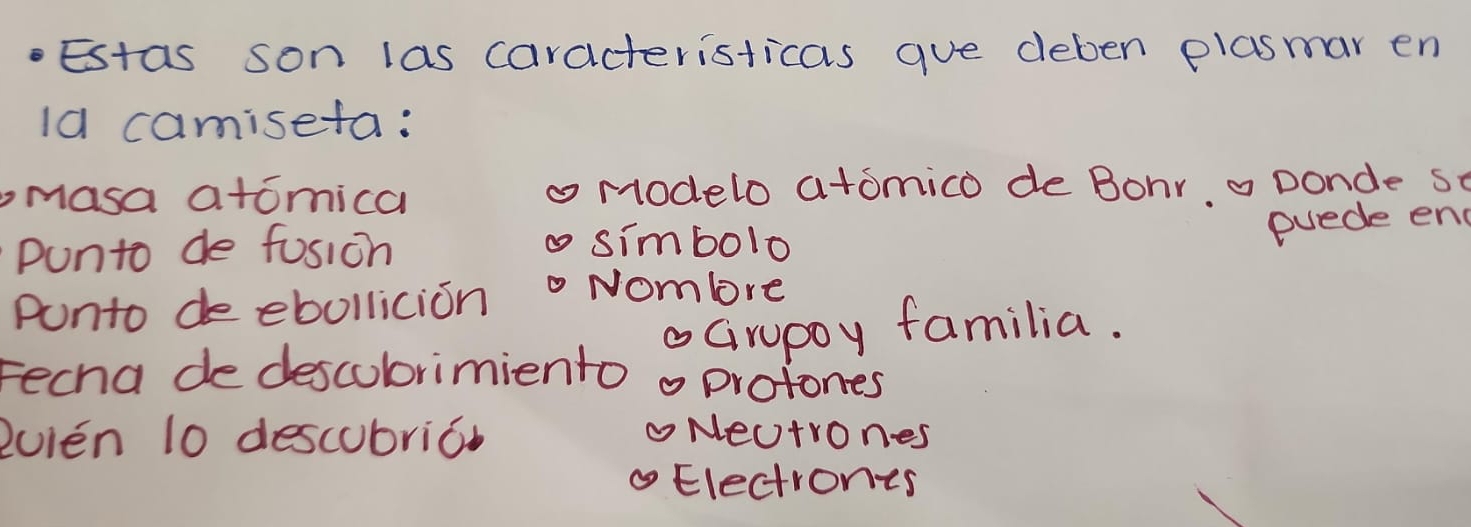 • Estas son las características que deben plasmar en
la camiseta:
Masa atómica
Punto de fusión
Punto de ebullición
Fecha de descubrimiento
Quién lo descubrió
Modelo atómico de Bohr.
símbolo
Nombre
Grupo y familia.
Protones
Neutrones
Electrones
Donde se
puede